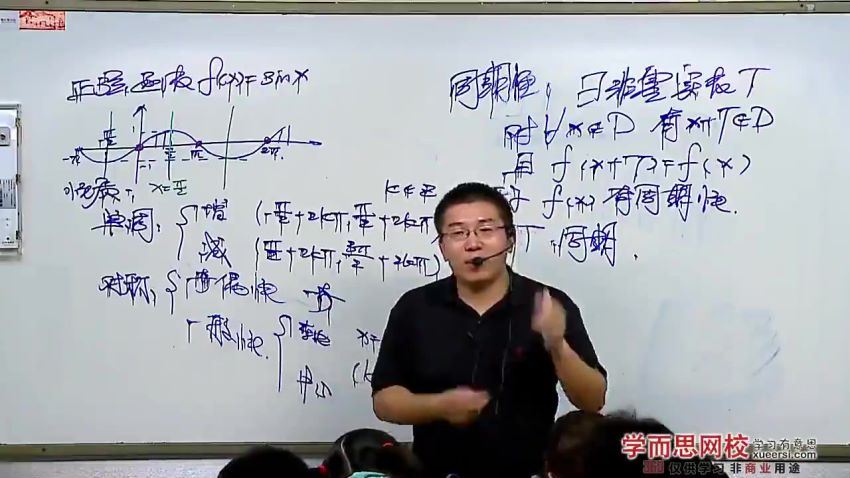 正弦函数 f(x)=sinx
1
-π
-π/2
-1
π/2
π
2π
x=π/2
性质:
单调: 增 (-π/2+2kπ, π/2+2kπ) k∈Z
减 (π/2+2kπ, 3π/2+2kπ)
对称: 奇偶性 奇
一般性 轴 x=
中心 (k
周期性: ∃非零实数T
对∀x∈D 有x+T∈D
且 f(x+T)=f(x)
f(x)有周期性.
T:周期.
学而思网校 学习有意思
xueersi.com
360 仅供学习 非商业用途